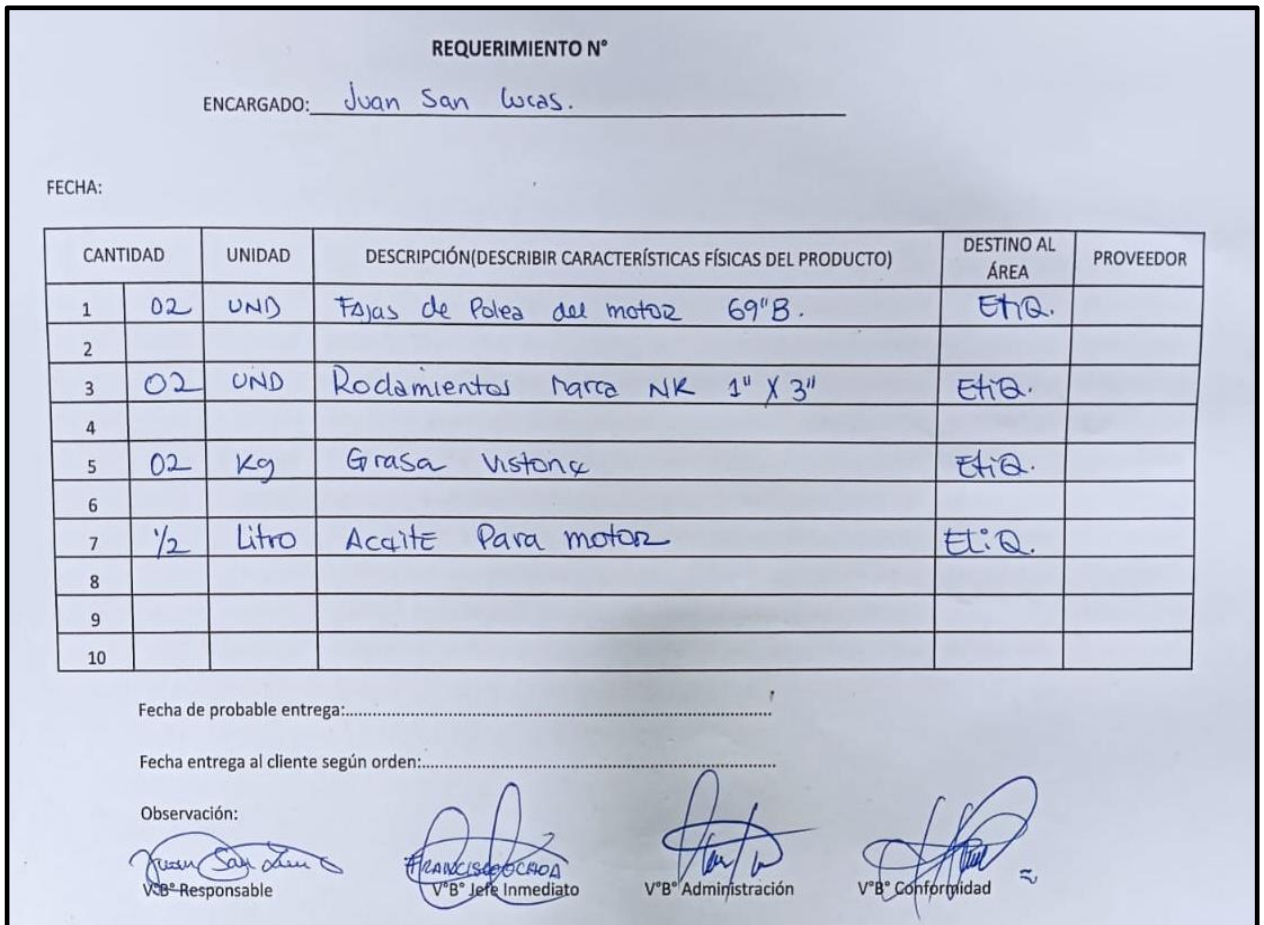 REQUERIMIENTO N°
ENCARGADO: Juan San Lucas.
FECHA:
CANTIDAD UNIDAD DESCRIPCIÓN(DESCRIBIR CARACTERÍSTICAS FÍSICAS DEL PRODUCTO) DESTINO AL ÁREA PROVEEDOR
1 02 UND Fajas de Polea del motor 69"B. EtiQ.
2
3 02 UND Rodamientos Marca NK 1" X 3" EtiQ.
4
5 02 Kg Grasa EtiQ.
6
7 1/2 Litro Aceite Para motor EtiQ.
8
9
10
Fecha de probable entrega:
Fecha entrega al cliente según orden:
Observación:
Juan San
FRANCISCO OCHOA
V°B° Responsable V°B° Jefe Inmediato V°B° Administración V°B° Conformidad